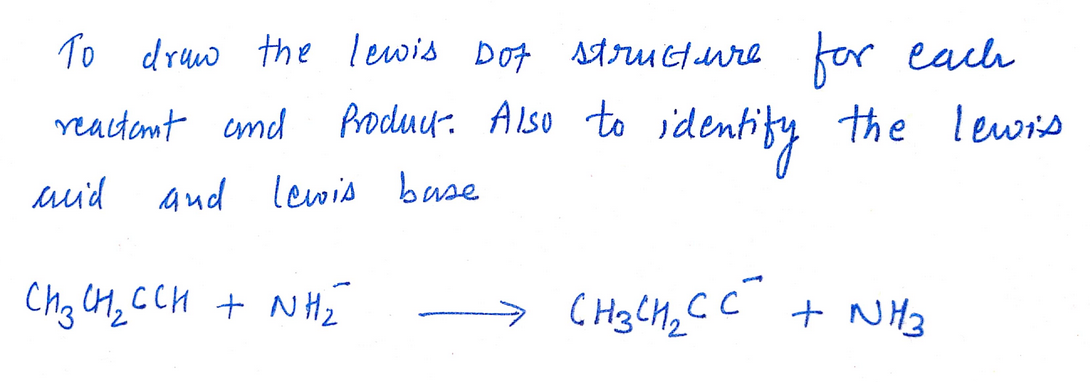 To draw the lewis Dot structure for each
reactant and Product. Also to identify the lewis
acid and lewis base
CH₃CH₂CCH + NH₂⁻ → CH₃CH₂CC⁻ + NH₃